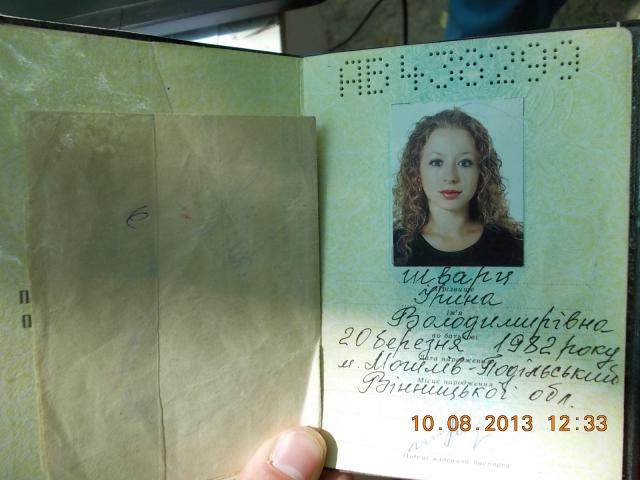 АВ 439299
Шварц
Прізвище
Ірина
ім'я
Володимирівна
по батькові
20 березня 1982 року
Дата народження
м. Могилів-Подільський
Місце народження
Вінницької обл.
10.08.2013 12:33
Підпис власника паспорта
П
П